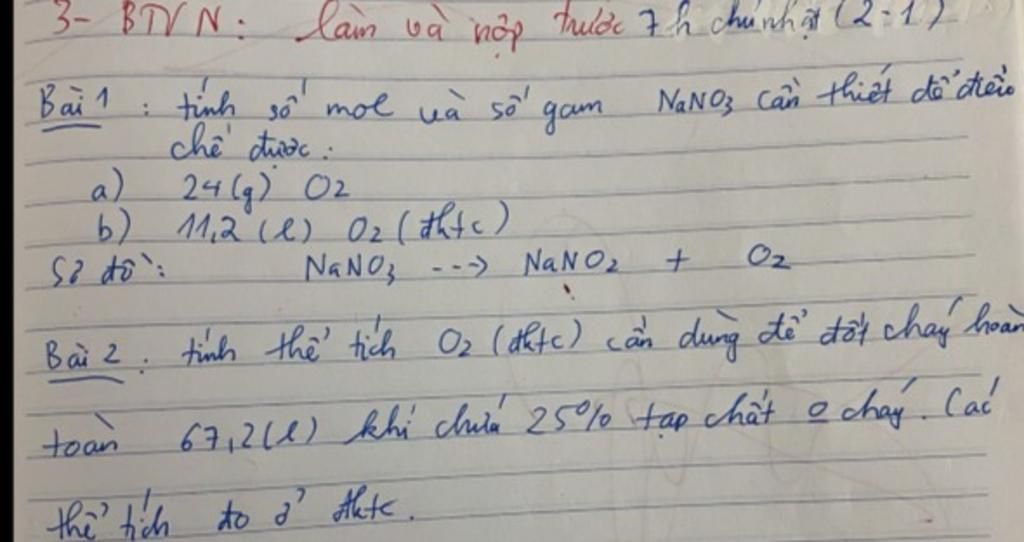 3- BTVN: làm và nộp trước 7h chủ nhật (2-1)
Bài 1: tính số mol và số gam NaNO3 cần thiết để điều
chế được:
a) 24(g) O2
b) 11,2 (l) O2 (đktc)
Sơ đồ: NaNO3 ---> NaNO2 + O2
Bài 2: tính thể tích O2 (đktc) cần dùng để đốt cháy hoàn
toàn 67,2(l) khí chứa 25% tạp chất o cháy. Các
thể tích đo ở đktc.